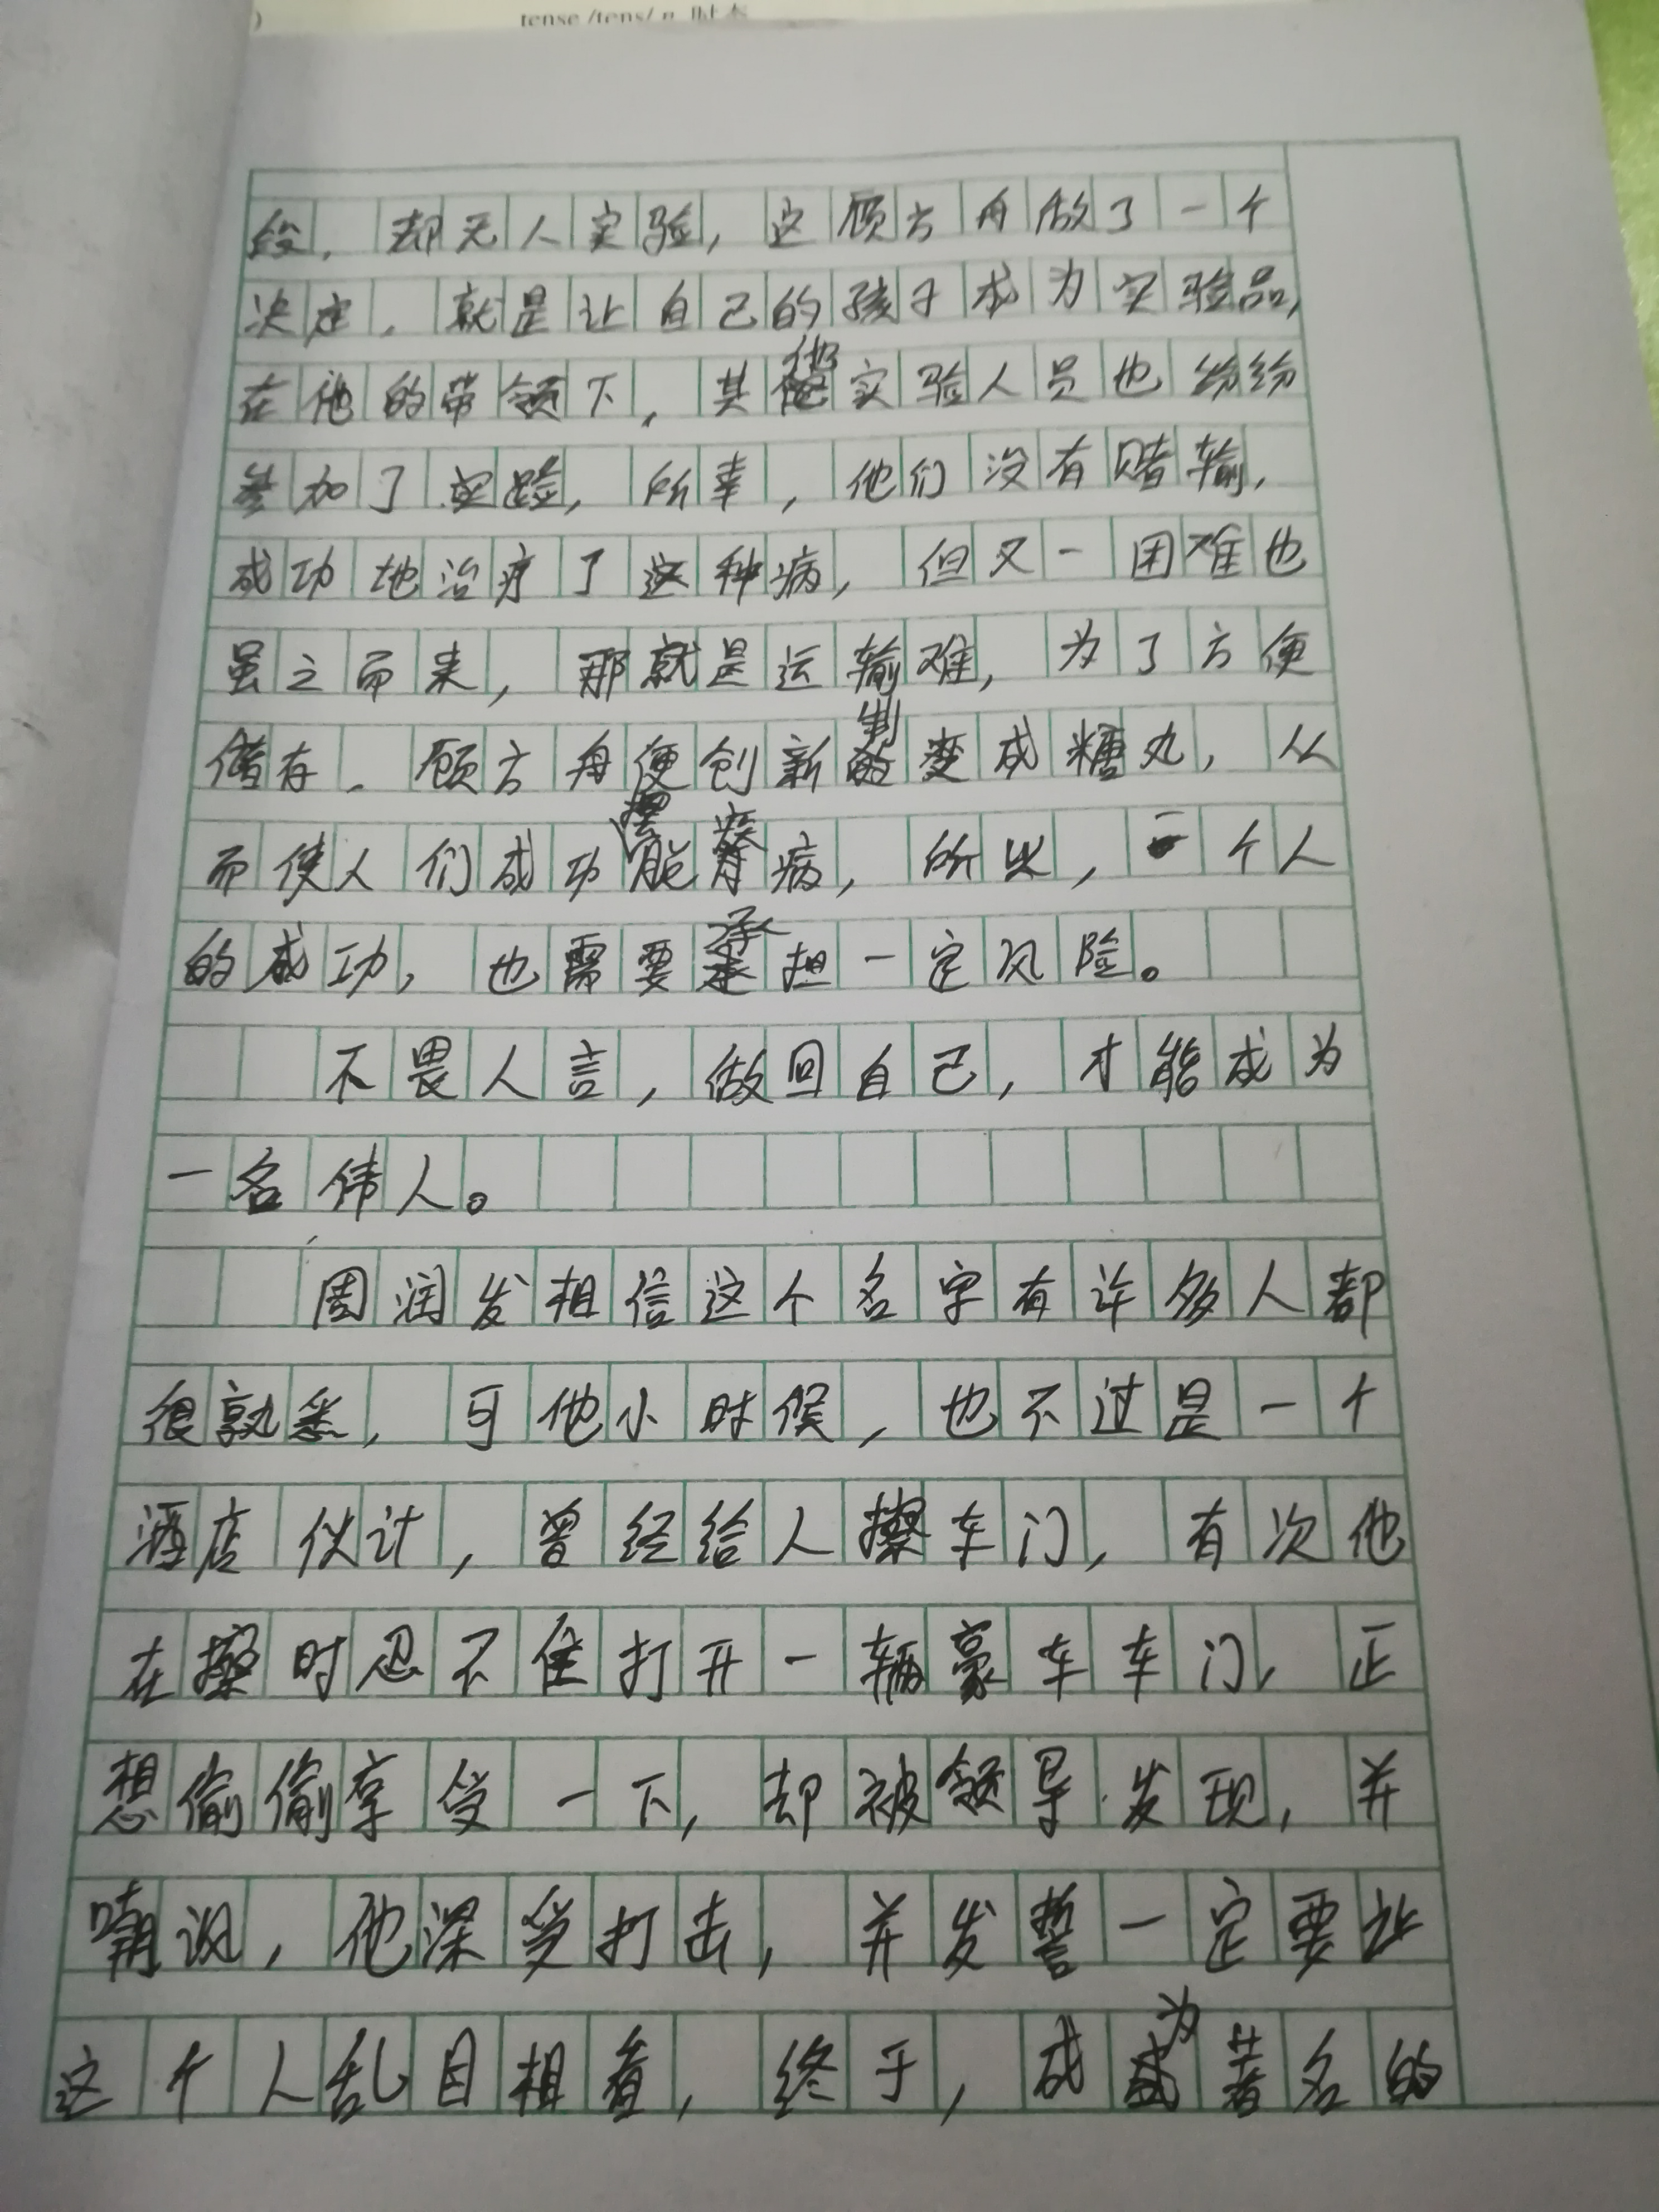 tense /tens/ n. 时态
段，却无人实验，这顾方舟做了一个
决定，就是让自己的孩子成为实验品，
在他的带领下，其他实验人员也纷纷
参加了实验，所幸，他们没有赌输，
成功地治疗了这种病，但又一困难也
虽之而来，那就是运输难，为了方便
储存，顾方舟便创新制变成糖丸，从
而使人们成功摆脱疾病，所以，一个人
的成功，也需要承担一定风险。
不畏人言，做回自己，才能成为
一名伟人。
周润发相信这个名字有许多人都
很熟悉，可他小时候，也不过是一个
酒店伙计，曾经给人擦车门，有次他
在擦时忍不住打开一辆豪车车门，正
想偷偷享受一下，却被领导发现，并
嘲讽，他深受打击，并发誓一定要让
这个人乱目相看，终于，成为著名的